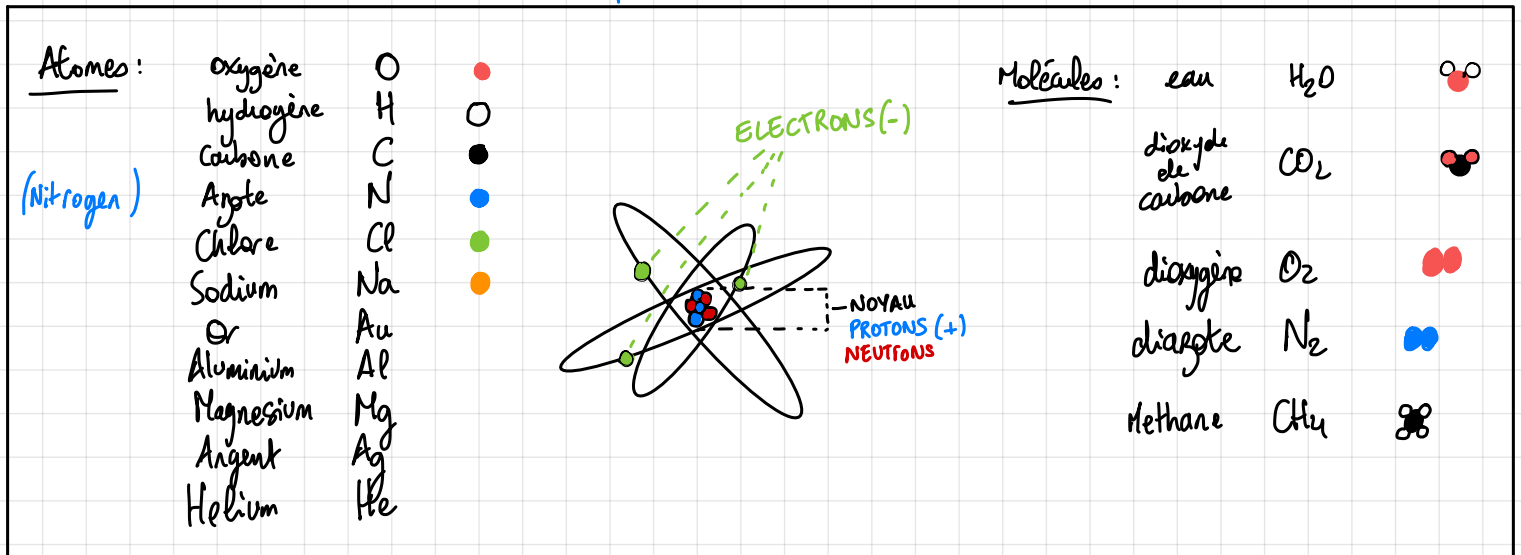 Atomes : oxygène O
hydrogène H
Carbone C
(Nitrogen) Azote N
Chlore Cl
Sodium Na
Or Au
Aluminium Al
Magnesium Mg
Argent Ag
Helium He
ELECTRONS (-)
NOYAU
PROTONS (+)
NEUTRONS
Molécules : eau H₂O
dioxyde
de CO₂
carbone
dioxygène O₂
diazote N₂
Methane CH₄